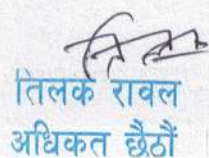 तिलक रावल
अधिकत छैठौं